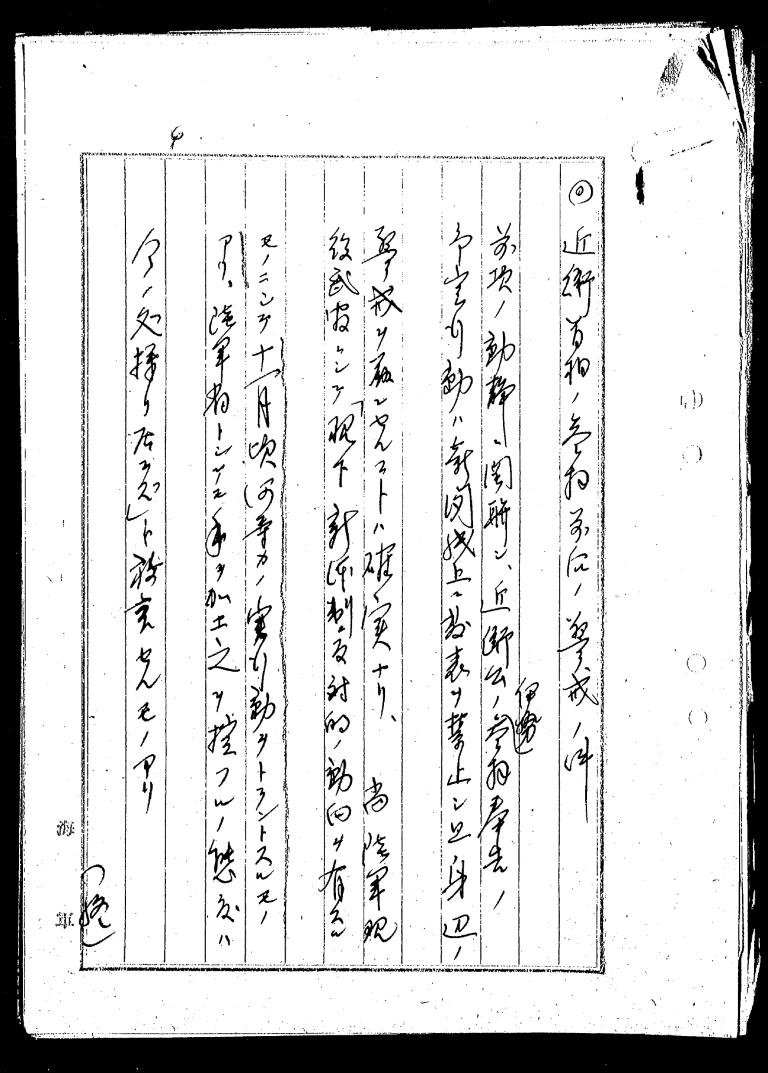 ◎近衛首相ノ参拝不穏ノ警戒ノ件
前項ノ動静ニ関聯シ、近衛公ノ伊勢参拝奉告ノ
予定行動ハ新聞紙上ニ発表ヲ禁止シ且身辺ノ
警戒ヲ厳ニセルコトハ確実ナリ、尚陸軍現
役武官ニシテ「現下新体制ニ反対的ノ動向ヲ有スル
モノニシテ十一月頃何等カノ実行動ヲトラントスルモノ
アリ、陸軍省トシテモ手ヲ加エ之ヲ控フルノ態度ハ
今ノ処採リ居ラズ」ト放言セルモノアリ
(終)
海軍